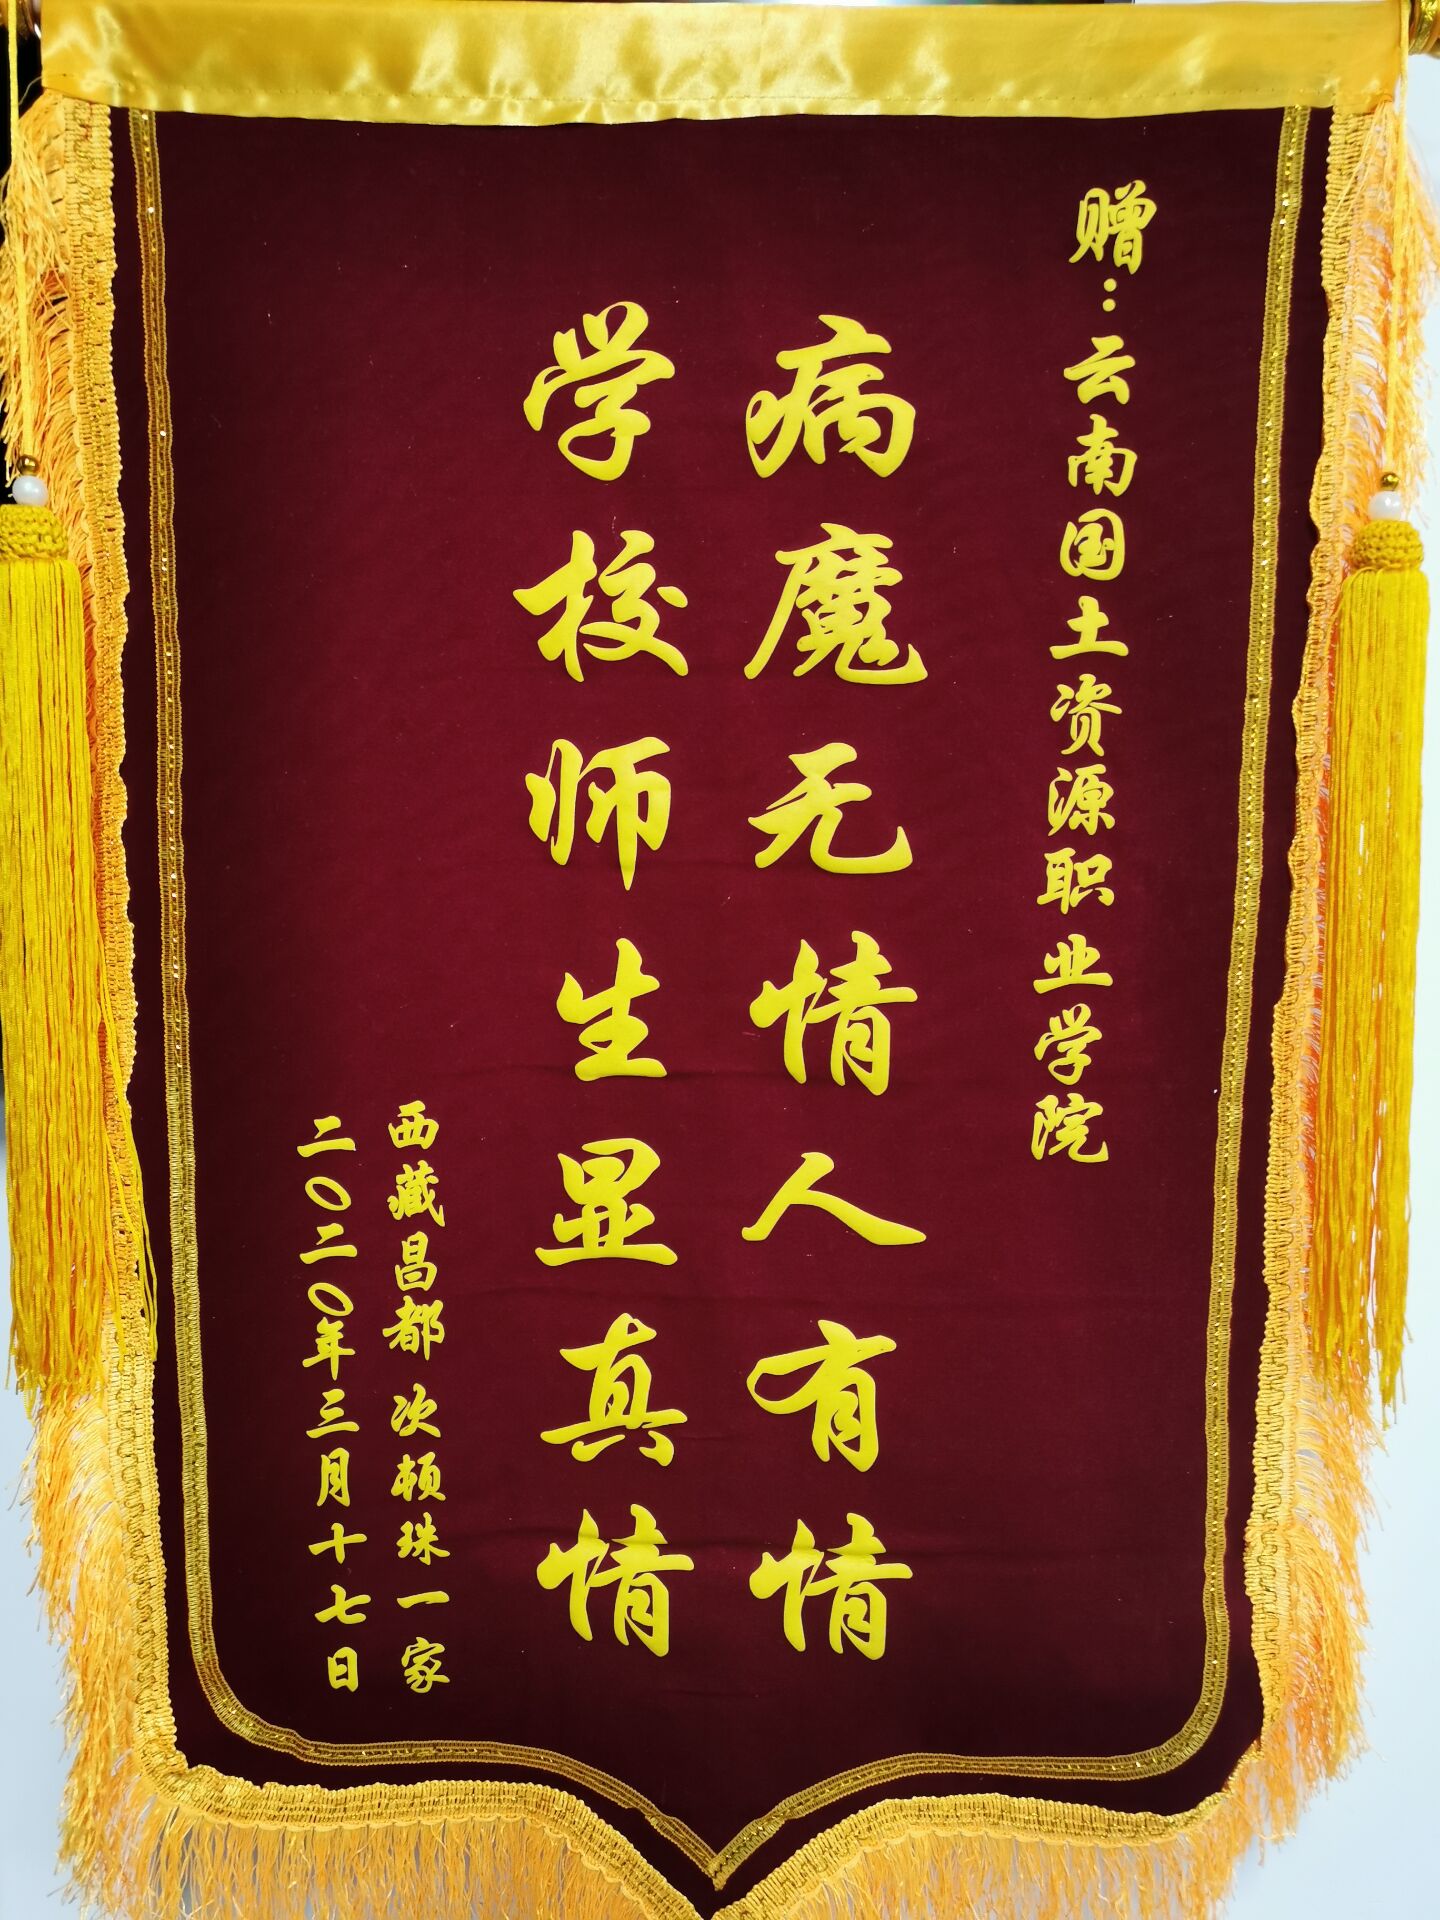 赠：云南国土资源职业学院
病魔无情人有情
学校师生显真情
西藏昌都 次顿珠一家
二〇二〇年三月十七日